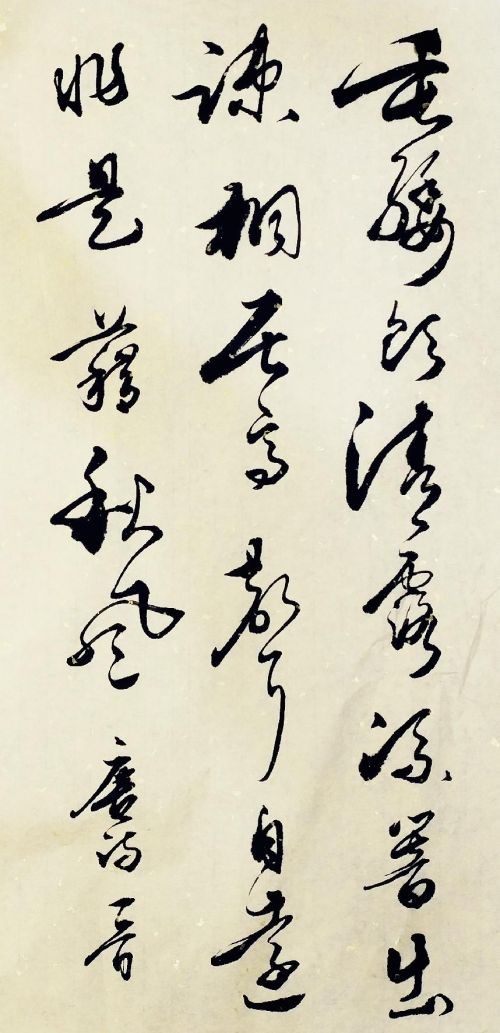 垂緌飲清露流響出
疎桐居高聲自遠
非是藉秋風唐詩一首